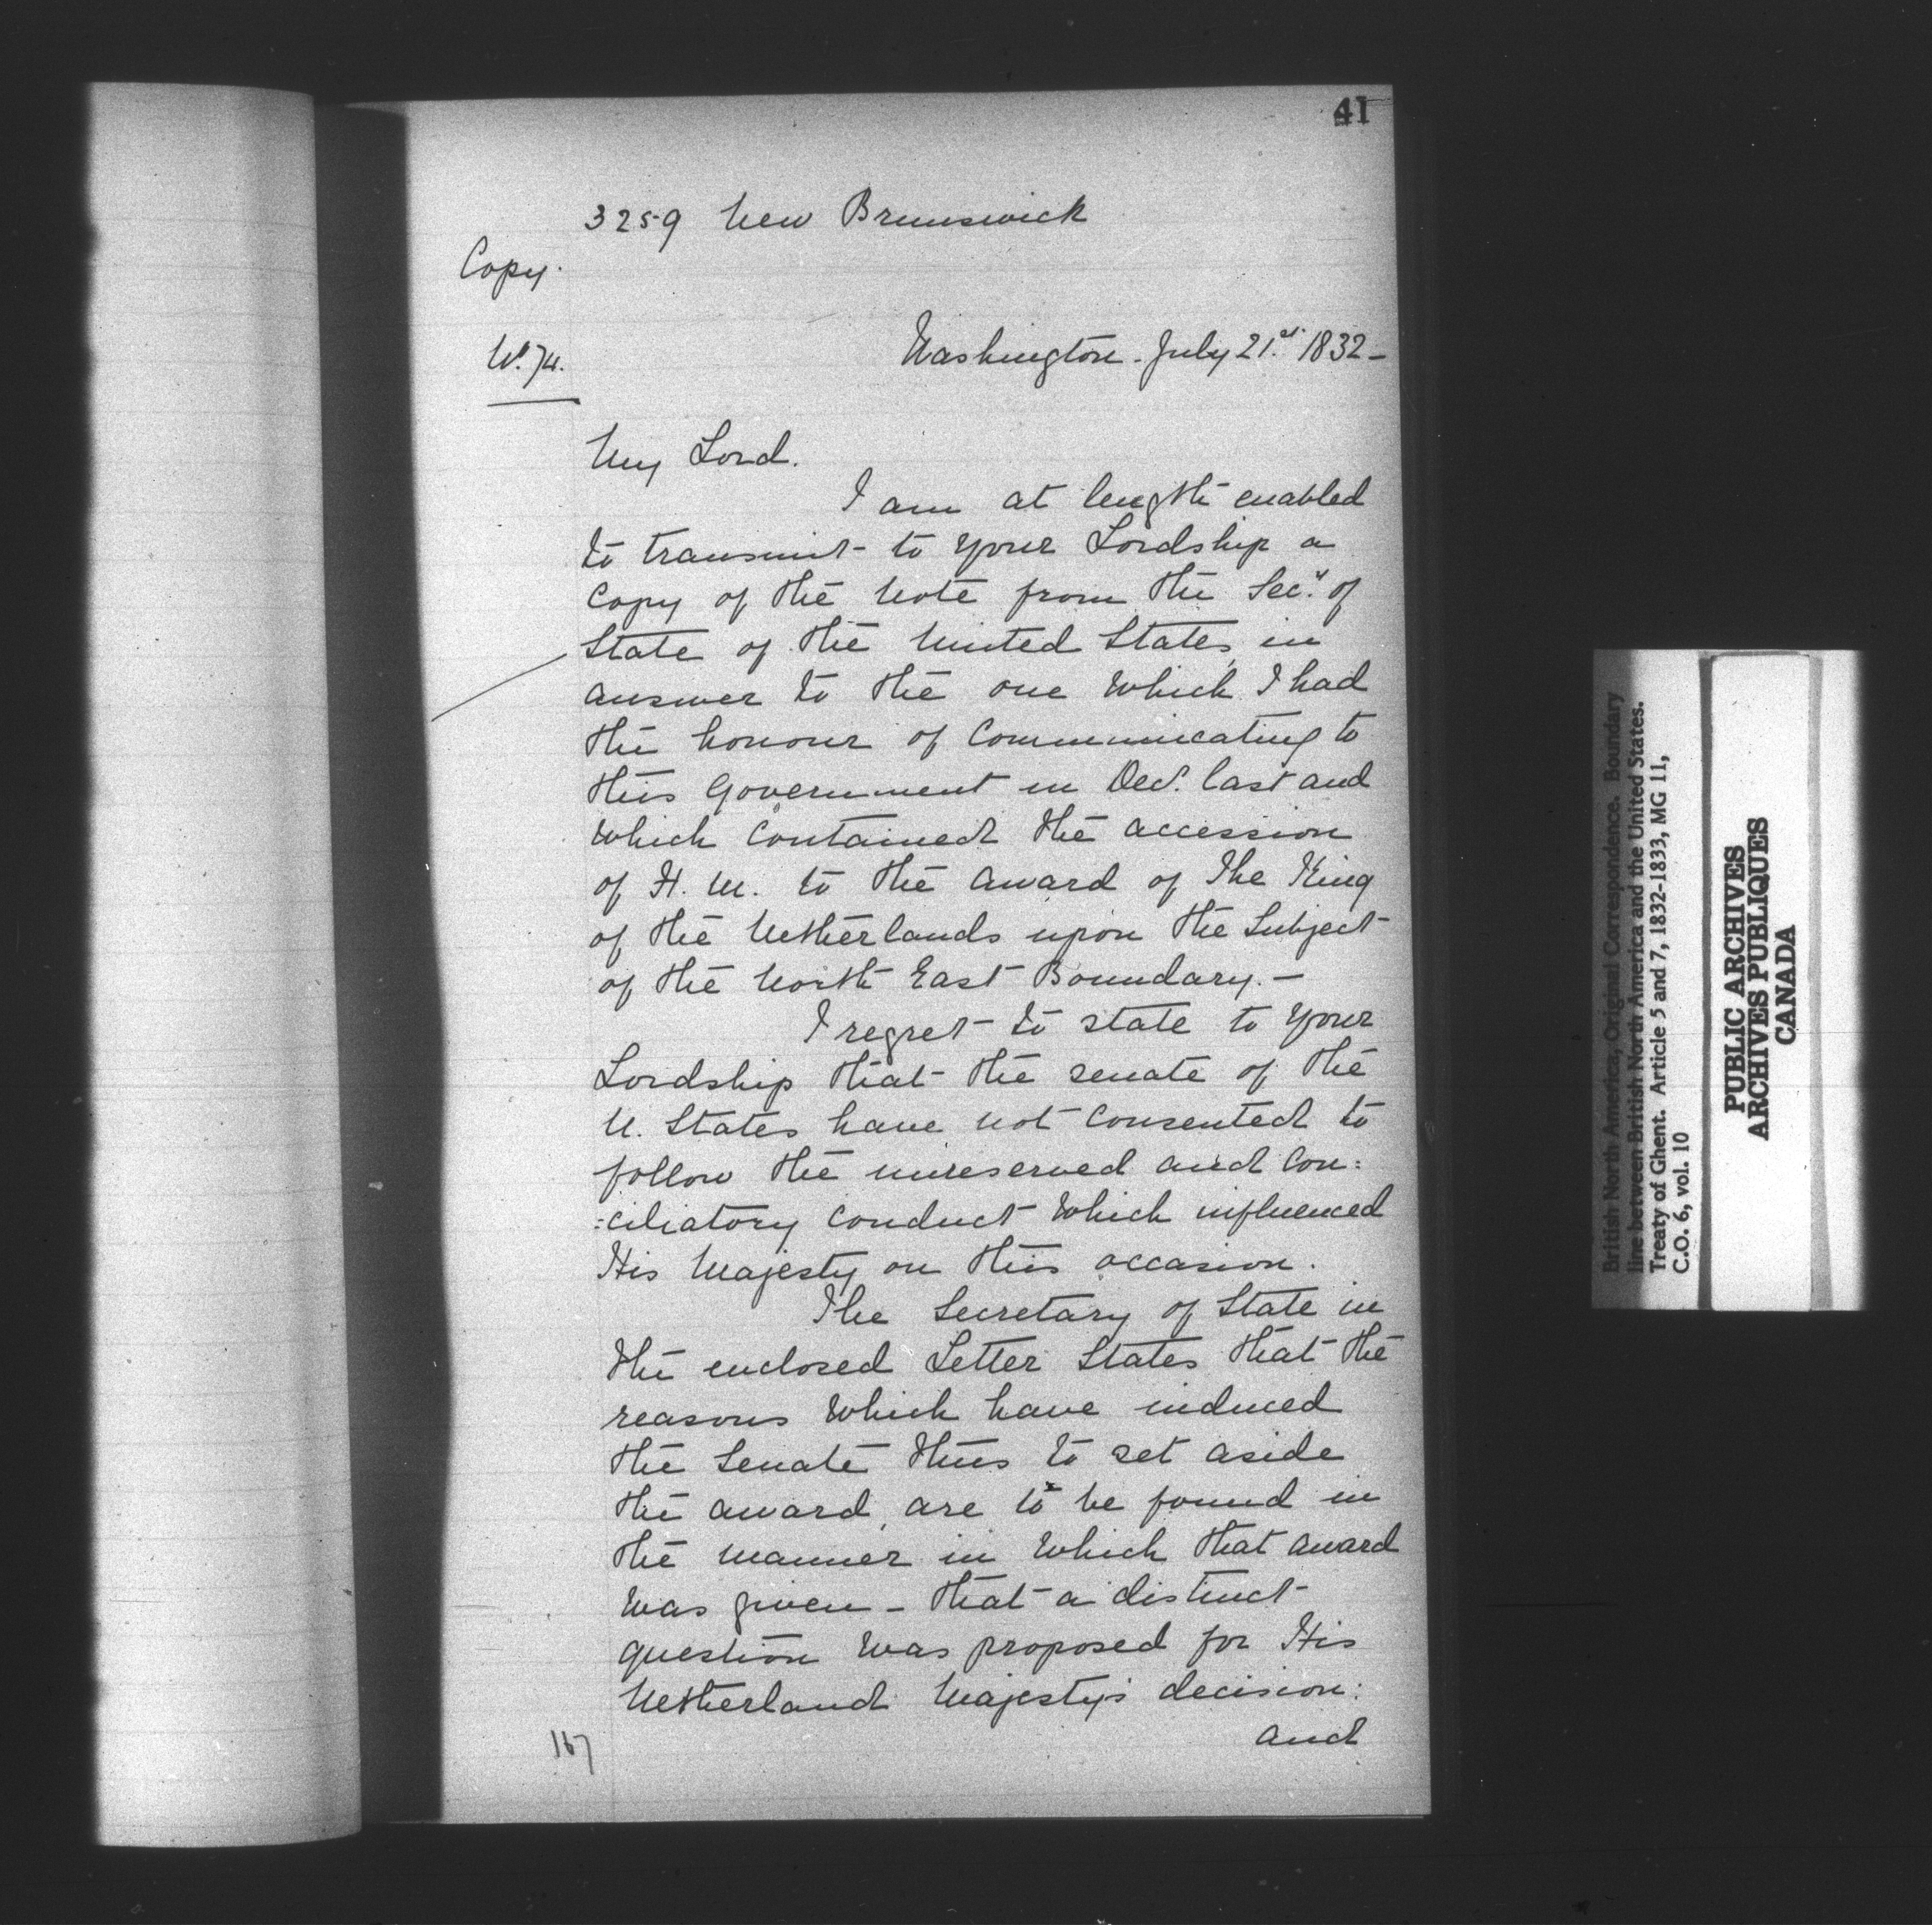 41
3259 New Brunswick
Copy.
No. 74.
Washington - July 21.st 1832 -
My Lord.
I am at length enabled
to transmit to your Lordship a
Copy of the Note from the Secy. of
State of the United States, in
answer to the one which I had
the honour of Communicating to
this Government in Decr. last and
which contained the accession
of H. M. to the award of The King
of the Netherlands upon the Subject
of the North East Boundary. -
I regret to state to your
Lordship that the senate of the
U. States have not consented to
follow the unreserved and con:
:ciliatory conduct which influenced
His Majesty on this occasion.
The Secretary of State in
the enclosed Letter States that the
reasons which have induced
the Senate thus to set aside
the award, are to be found in
the manner in which that award
was given - that a distinct
question was proposed for His
Netherland Majesty's decision:
and
167
British North America, Original Correspondence. Boundary
line between British North America and the United States.
Treaty of Ghent. Article 5 and 7, 1832-1833, MG 11,
C.O. 6, vol. 10
PUBLIC ARCHIVES
ARCHIVES PUBLIQUES
CANADA